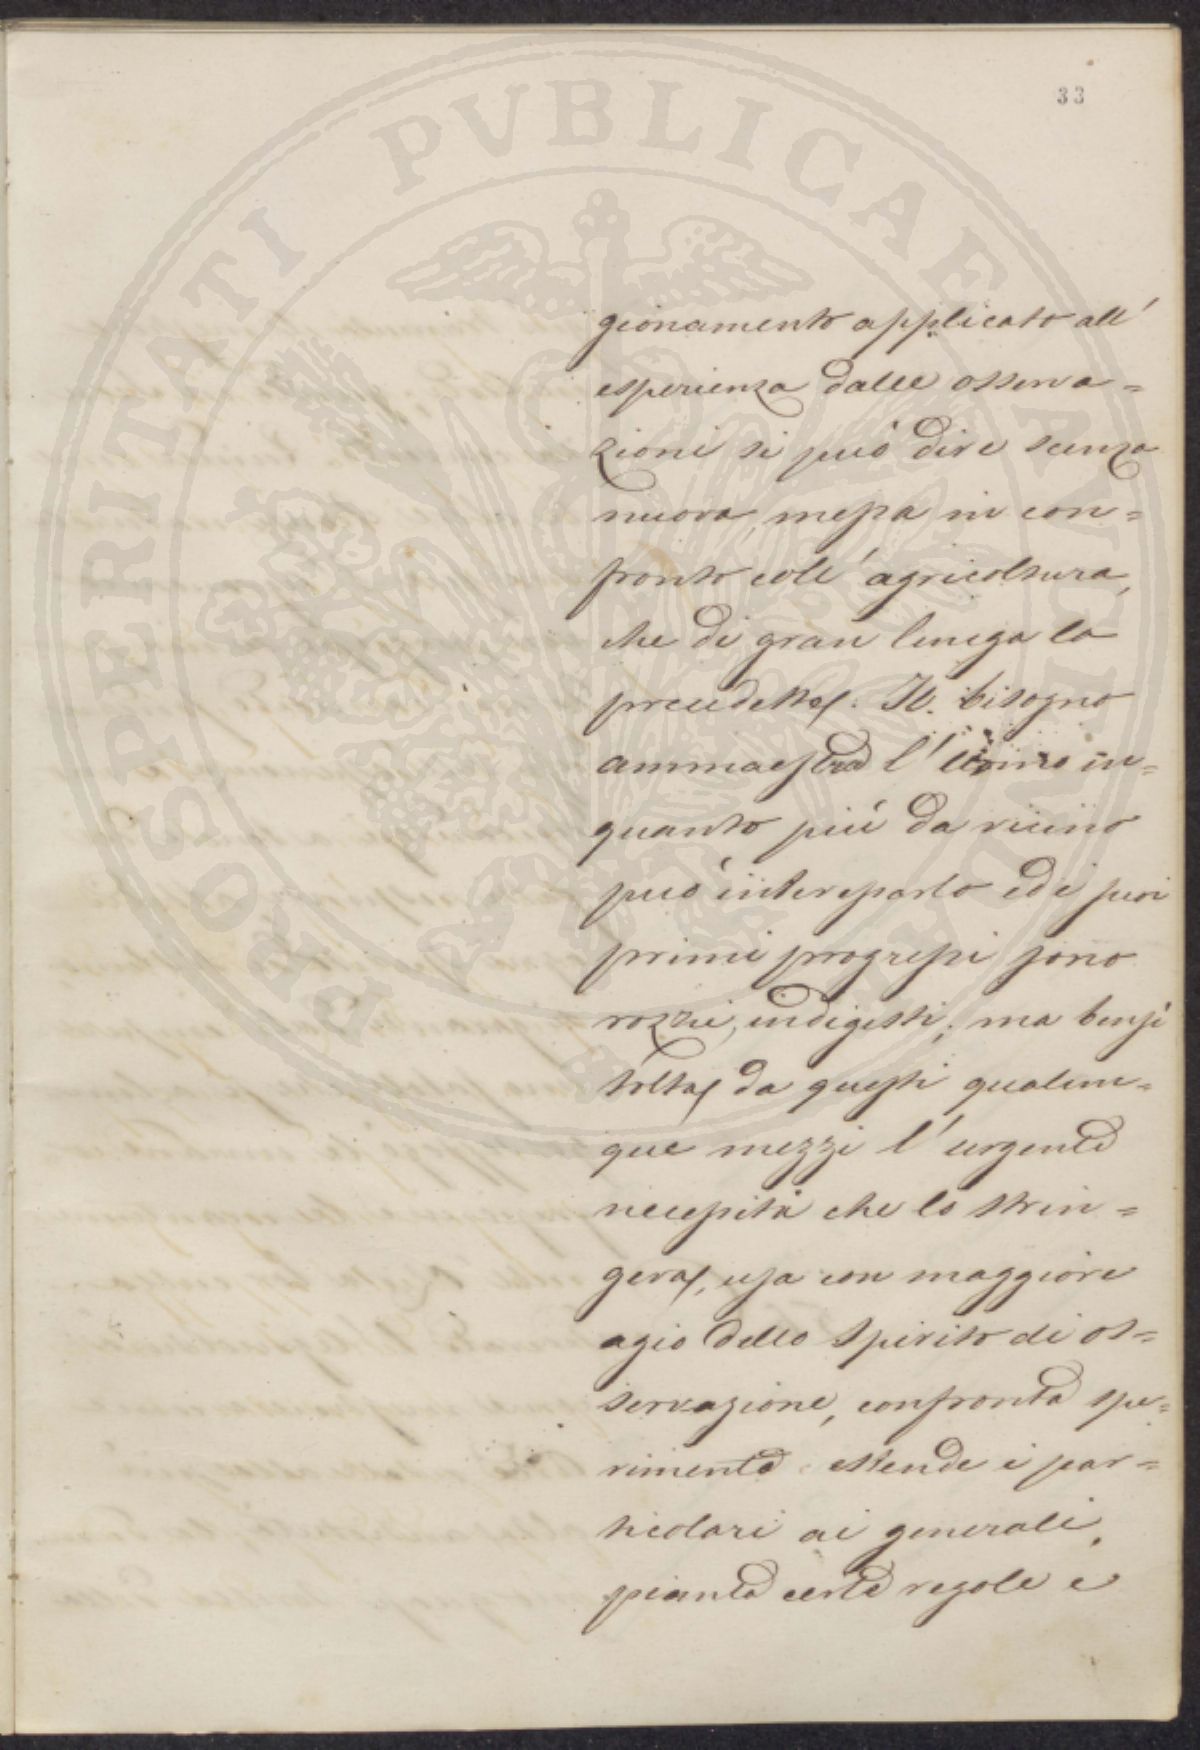 33
PROSPERITATI PVBLICAE AVGENDAE
gionamento applicato all'
esperienza dalle osserva=
zioni si può dire scienza
nuova, messa in con=
fronto coll' agricoltura,
che di gran lunga la
precedette. Il bisogno
ammaestra l'uomo in=
quanto più da vicino
può interessarlo ed i suoi
primi progressi sono
rozzi, indigesti; ma bensì
tolta da questi qualun=
que mezzi l' urgente
necessità che lo strin=
geva, usa con maggiore
agio dello spirito di os=
servazione, confronta spe=
rimenta estende i par=
ticolari ai generali,
pianta certe regole e